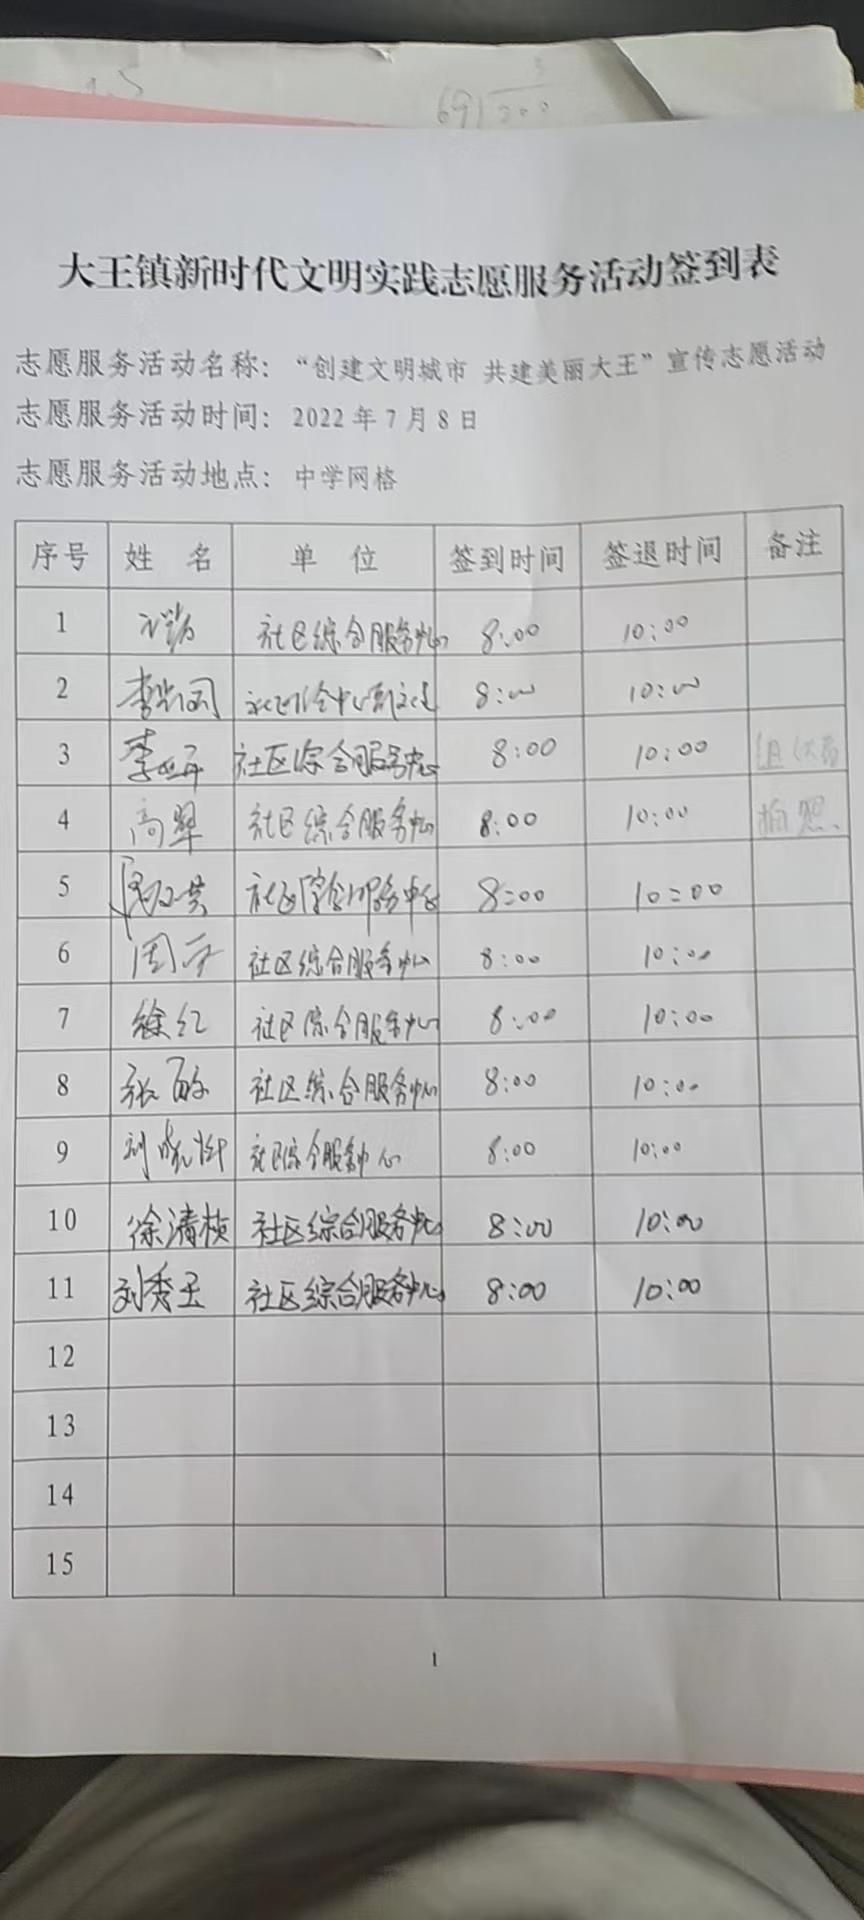 69 200
大王镇新时代文明实践志愿服务活动签到表
志愿服务活动名称：“创建文明城市 共建美丽大王”宣传志愿活动
志愿服务活动时间：2022年7月8日
志愿服务活动地点：中学网格
序号 姓 名 单 位 签到时间 签退时间 备注
1 社区综合服务中心 8:00 10:00
2 8:00 10:00
3 李 社区综合服务中心 8:00 10:00
4 高翠 社区综合服务中心 8:00 10:00 拍照
5 社区综合服务中心 8:00 10:00
6 周 社区综合服务中心 8:00 10:00
7 徐红 社区综合服务中心 8:00 10:00
8 张 社区综合服务中心 8:00 10:00
9 刘晓 社区综合服务中心 8:00 10:00
10 徐清桢 社区综合服务中心 8:00 10:00
11 刘秀玉 社区综合服务中心 8:00 10:00
12
13
14
15
1